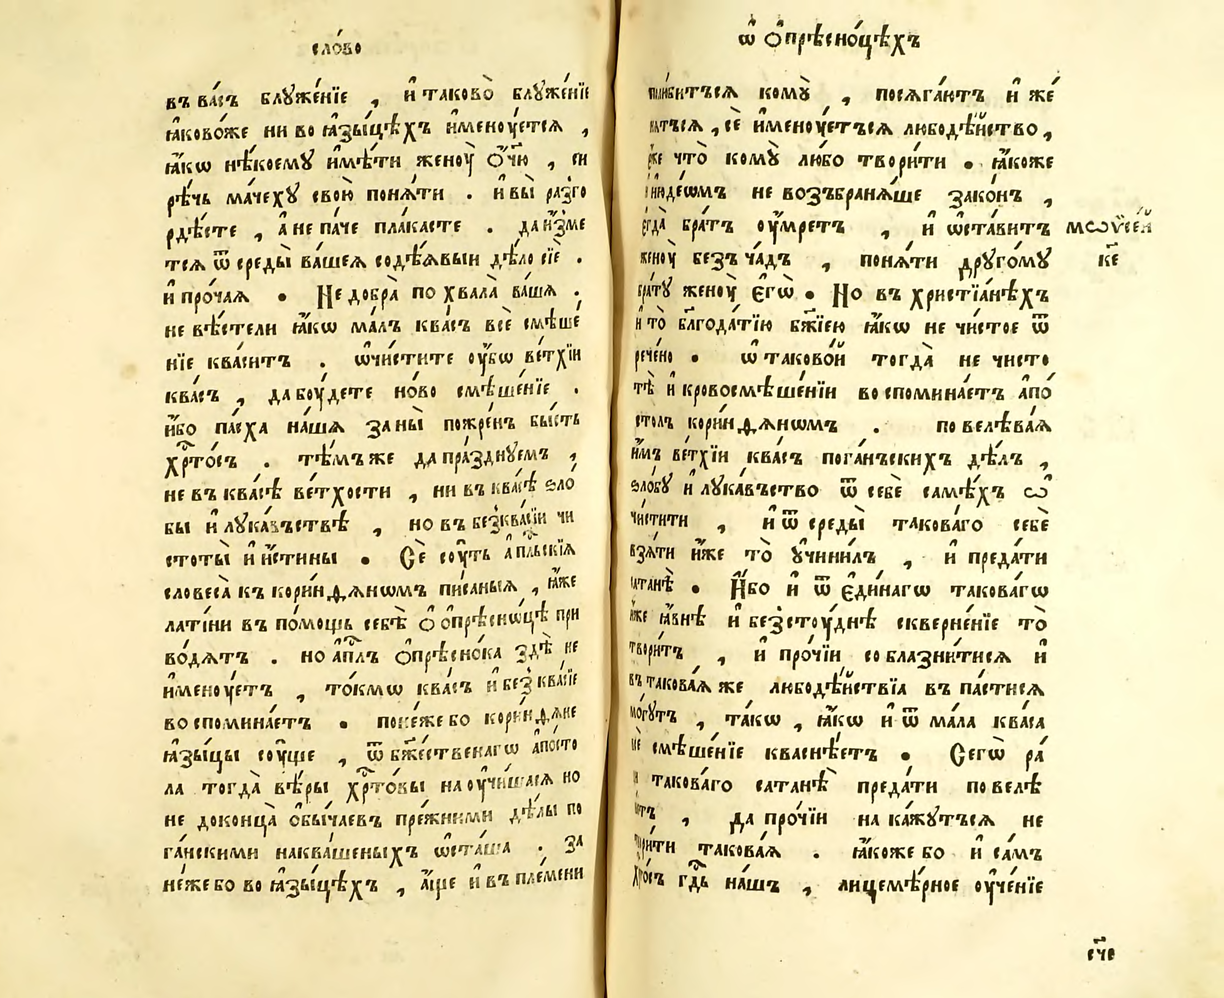 сло́во
въ ва́съ блꙋже́нїе , и҆ таково̀ блꙋже́нїе
ꙗ҆ково́же ни во ꙗ҆зы́цѣхъ и҆меноꙋ́ется ,
ꙗ҆́кѡ нѣ́коемꙋ и҆мѣ́ти женоꙋ̀ Ѻ҆́чю , си
рѣ́чь ма́чехꙋ свою̀ поня́ти . и҆ вы̀ разго
рдѣ́сте , а҆ не па́че пла́касте . да и҆́зме
тся ѿ среды̀ ва́шея содѣ́явыи дѣ́ло сїѐ .
и҆ про́чая • Не добра̀ по хвала̀ ва́шя .
не вѣ́стели ꙗ҆́кѡ ма́лъ ква́съ всѐ смѣше́
нїе ква́ситъ . ѡ҆чи́стите оу҆́бѡ ве́тхїи
ква́съ , да боу́дете но́во смѣше́нїе .
и҆́бо па́сха на́шя за ны̀ пожре́нъ бы́сть
хрⷭ҇то́съ . тѣ́мъ же да пра́зднуемъ ,
не въ ква́сѣ ве́тхости , ни въ ква́сѣ ѕло́
бы и҆ лꙋка́вьствѣ , но въ безква́сїи чи
стоты̀ и҆ и҆́стины • Сѐ соу́ть а҆пⷭ҇льскїя
словеса̀ къ кори́нѳяномъ пи́саныя , ꙗ҆́же
лати́ни въ по́мощь себѣ̀ Ѻ҆ ѻ҆прѣсно́цѣ при
во́дятъ . но а҆пⷭ҇лъ ѻ҆прѣсно́ка здѣ̀ не
и҆меноу́етъ , то́кмѡ ква́съ и҆ без ква́сїе
воспомина́етъ • поне́же бо кори́нѳяне
ꙗ҆зы́цы соу́ще , ѿ бж҃е́ственагѡ а҆по́сто
ла тогда̀ вѣ́ры хрⷭ҇то́вы наоу҆чи́шася но
не доконца̀ ѻ҆бы́чаевъ пре́жними дѣ́лы по
га́нскими наква́шеныхъ ѡ҆ста́ша . за
не́же бо во ꙗ҆зы́цѣхъ , а҆́ще и҆ въ пле́мени
ѡ҆ Ѻ҆прѣсно́цѣхъ
комꙋ̀ , посяга́ютъ и҆ же́
, сѐ и҆меноу́етъся любодѣ́йство ,
что̀ комꙋ̀ лю́бо твори́ти • ꙗ҆́коже
і҆юде́ѡмъ не возъбраня́ше зако́нъ ,
егда̀ бра́тъ оу҆́мретъ , и҆ ѡ҆ста́витъ
мѡѷсе́й
женоу̀ безъ ча́дъ , поня́ти дрꙋго́мꙋ
к҃е
бра́тꙋ женоу̀ Є҆гѡ̀ • Но въ христїа́нѣхъ
и҆ то̀ бл҃года́тїю бж҃їею ꙗ҆́кѡ не чи́стое ѿ
рече́но • ѡ҆ таково́й тогда̀ не чисто
тѣ̀ и҆ кровосмѣше́нїи воспомина́етъ а҆по́
столъ кори́нѳяномъ . повелѣва́я
и҆́мъ ве́тхїи ква́съ пога́ньскихъ дѣ́лъ ,
ѕло́бꙋ и҆ лꙋка́въство ѿ себѐ самѣ́хъ ѡ҆
чи́стити , и҆ ѿ среды̀ такова́го себѐ
взя́ти и҆́же то̀ ᲂучини́лъ , и҆ преда́ти
сатанѣ̀ • И҆́бо и҆ ѿ є҆ди́нагѡ такова́гѡ
и҆́же ꙗ҆́внѣ и҆ безстоу́днѣ скверне́нїе то̀
твори́тъ , и҆ про́чїи соблазни́тися и҆
въ такова́я же любодѣ́йствїа въ па́стися
могꙋ́тъ , та́кѡ , ꙗ҆́кѡ и҆ ѿ ма́ла ква́са
смѣше́нїе квасне́етъ • Сегѡ̀ ра́
такова́го сатанѣ̀ преда́ти повелѣ̀
, да про́чїи на ка́жꙋтъся не
такова́я . ꙗ҆́коже бо и҆ са́мъ
хрⷭ҇то́съ гдⷭ҇ь на́шъ , лицемѣ́рное оу҆че́нїе
сч҃е